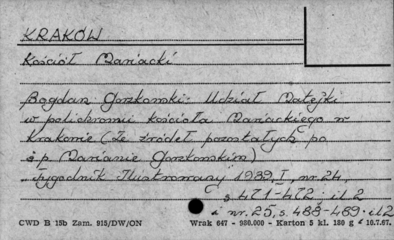 KRAKÓW
Kościół Mariacki
Bogdan Gorzkowski: Udział Matejki
w polichromii kościoła Mariackiego w
Krakowie (Ze źródeł pozostałych po
ś.p. Marianie Gorzkowskim)
Tygodnik Ilustrowany 1939, I, nr. 24,
s. 471-472; il. 2
i nr. 25, s. 488-489; il. 2
CWD B 15b Zam. 915/DW/ON Wrak 647 - 950.000 - Karton 5 kl. 180 g 10.7.67.